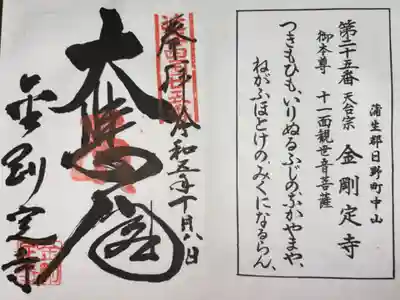 蒲生郡日野町中山
第二十五番 天台宗 金剛定寺
御本尊 十一面観世音菩薩
つきもひも、いりぬるふじのふかやまや、
ねがふほとけの、みくになるらん、
奉拝 令和五年十月八日
大悲閣
金剛定寺